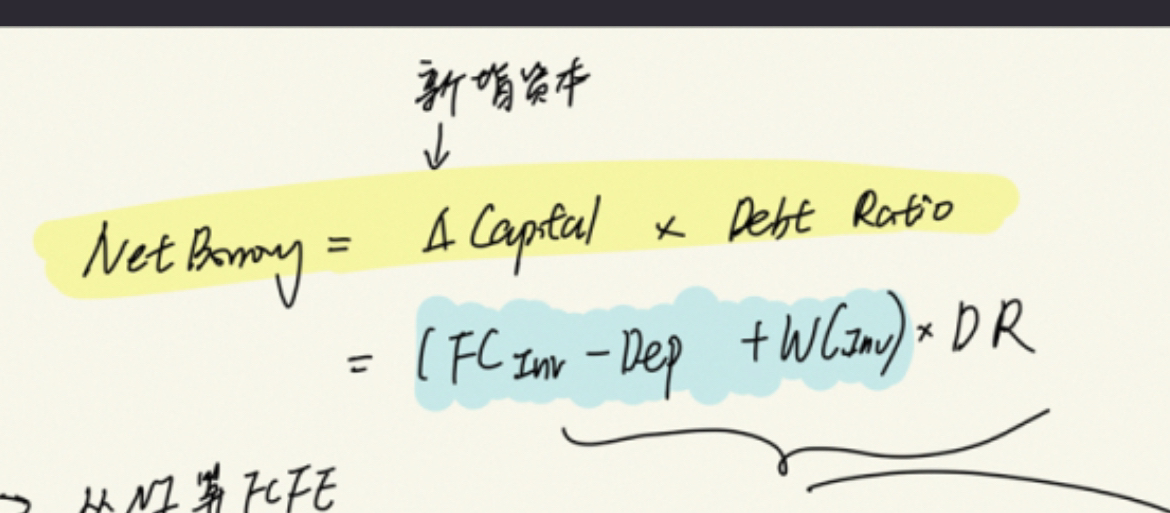 新增资本
↓
Net Borrow = Δ Capital × Debt Ratio
= (FC Inv - Dep + WC Inv) × DR
→ 从NI算FCFE